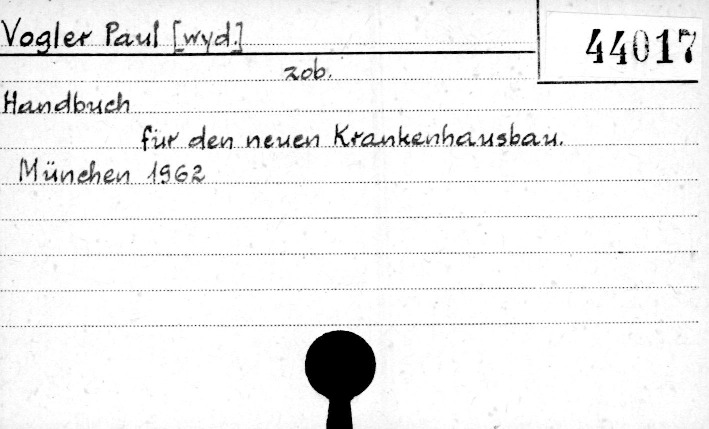 Vogler Paul [wyd.]
44017
zob.
Handbuch
für den neuen Krankenhausbau.
München 1962